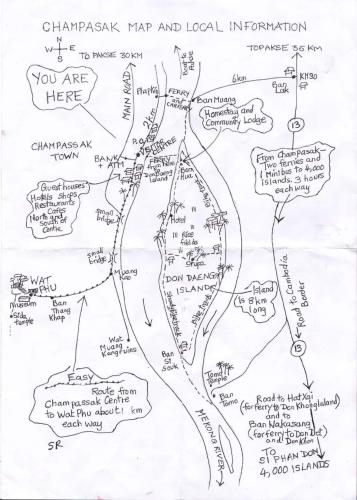 CHAMPASAK MAP AND LOCAL INFORMATION
N
W E
S
TO PAKSE 30 KM
TO PAKSE 35 KM
YOU ARE
HERE
MAIN ROAD
Boat to
Above
6km
KM30
Ban
Lak
FERRY
Ban Muang
Homestay and
Community Lodge
13
CHAMPASSAK
TOWN
BANK
+ ATM
From Champasak
Two ferries and
1 Minibus to 4,000
islands. 3 hours
each way
Guesthouses
Hotels Shops
Restaurants
Cafes
North and
South of
Centre
Ban
Hua
small
bridge
Hotel
Rice
fields
small
bridge
WAT
PHU
Museum
Side
temple
Ban
Thang
Khap
Muang
Kao
DON DAENG
ISLAND
Island
Is 8km
long
Bike Track
Road to Cambodia
Border
Wat
Muang
Ban Si
Souk
13
Easy
Route from
Champassak Centre
to Wat Phu about 1 km
each way
SR
Temple
Ban
MEKONG RIVER
Road to Hat Xai
(for ferry to Don Khong Island)
and to
Ban Nakasang
(for ferry to Don Det
and Don Khon
To
SI PHAN DON
4,000 ISLANDS